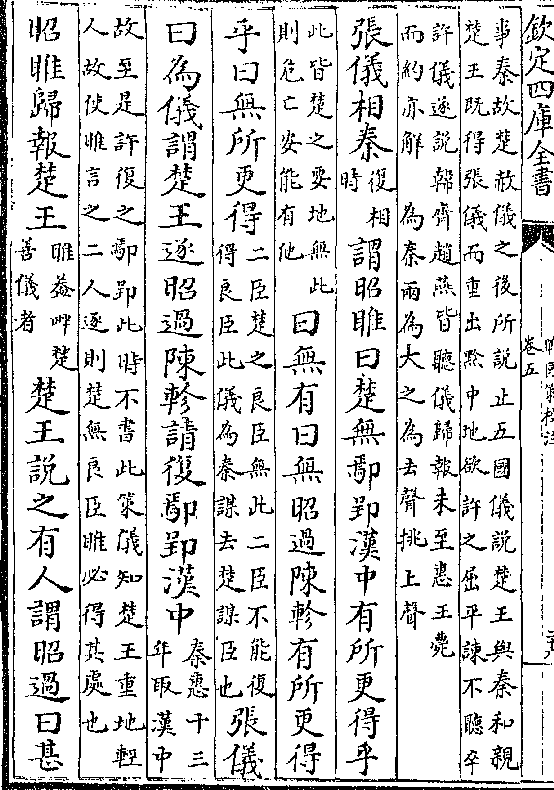 欽定四庫全書
卷五
事秦故楚赦儀之後所說止五國儀說楚王與秦和親
楚王既得張儀而重出黔中地欲許之屈平諫不聽卒
許儀遂說韓齊趙燕皆聽儀歸報未至惠王薨
而約亦解 為秦兩為大之為去聲挑上聲
張儀相秦復相時謂昭雎曰楚無鄢郢漢中有所更得乎
此皆楚之要地無此則危亡安能有他曰無有曰無昭過陳軫有所更得
乎曰無所更得二臣楚之良臣無此二臣不能復得良臣此儀為秦謀去楚謀臣也張儀
曰為儀謂楚王逐昭過陳軫請復鄢郢漢中秦惠十三年取漢中
故至是許復之鄢郢此時不書此策儀知楚王重地輕
人故使雎言之二人逐則楚無良臣雎必得其處也
昭雎歸報楚王雎葢呷楚善儀者楚王說之有人謂昭過曰甚